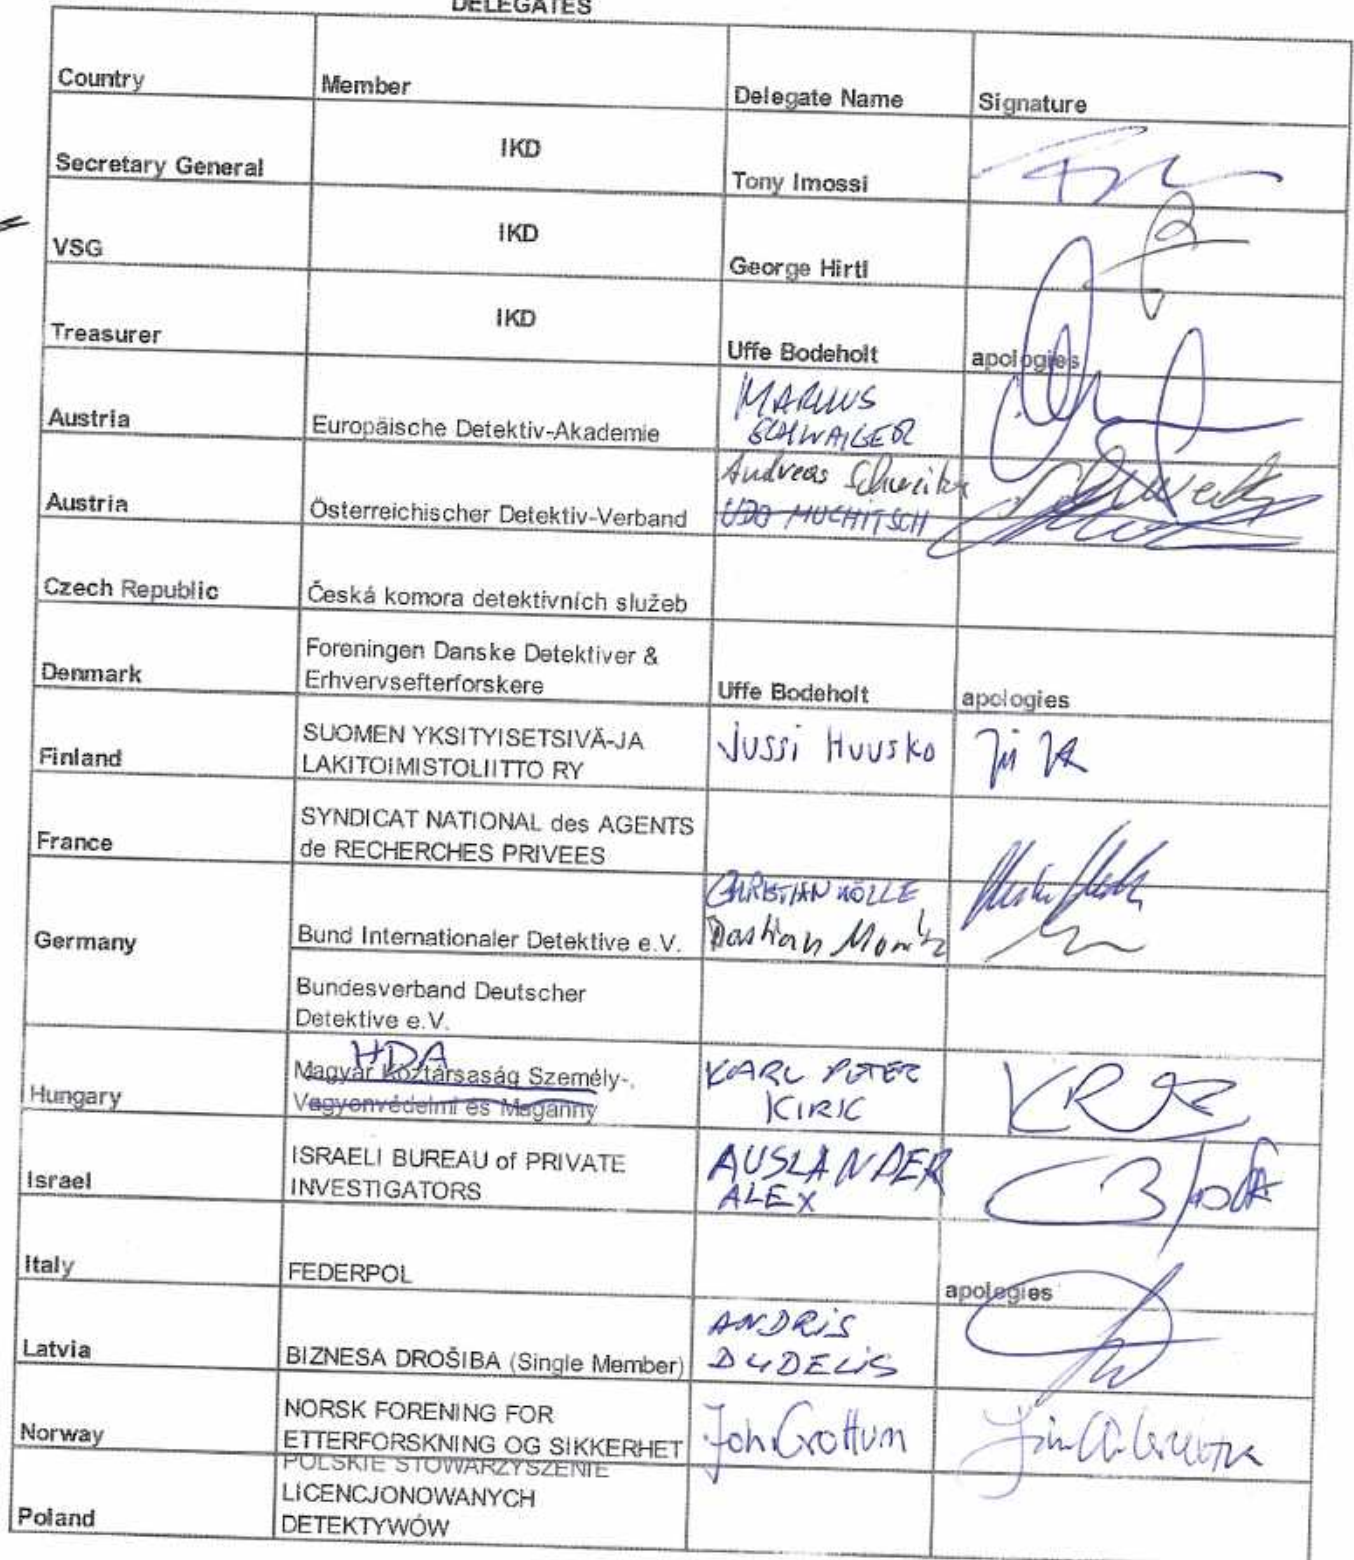 DELEGATES
Country Member Delegate Name Signature
Secretary General IKD Tony Imossi
VSG IKD George Hirtl
Treasurer IKD Uffe Bodeholt apologies
Austria Europäische Detektiv-Akademie MARKUS SCHWAIGER
Austria Österreichischer Detektiv-Verband Andreas UDO MUCHITSCH
Czech Republic Česká komora detektivních služeb
Denmark Foreningen Danske Detektiver &
Erhvervsefterforskere Uffe Bodeholt apologies
Finland SUOMEN YKSITYISETSIVÄ-JA
LAKITOIMISTOLIITTO RY Jussi Huusko
France SYNDICAT NATIONAL des AGENTS
de RECHERCHES PRIVEES
Germany Bund Internationaler Detektive e.V. CHRISTIAN
Bundesverband Deutscher
Detektive e.V.
HDA
Hungary Magyar Köztársaság Személy-,
Vagyonvédelmi és Magánny KARL PETER
KIRIC
Israel ISRAELI BUREAU of PRIVATE
INVESTIGATORS AUSLANDER
ALEX
Italy FEDERPOL apologies
Latvia BIZNESA DROŠIBA (Single Member) ANDRIS
Norway NORSK FORENING FOR
ETTERFORSKNING OG SIKKERHET
Poland POLSKIE STOWARZYSZENIE
LICENCJONOWANYCH
DETEKTYWÓW